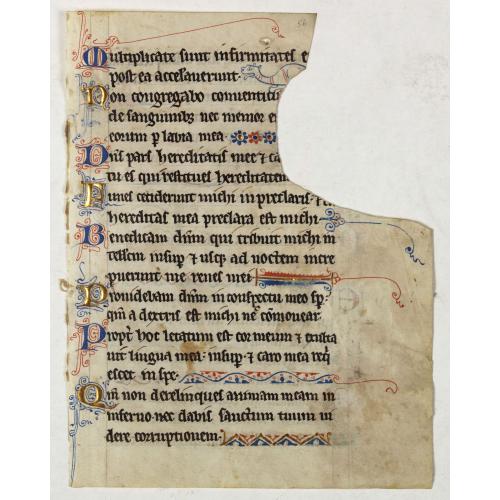 56
Multiplicate sunt infirmitates e
post ea accelauerunt.
Non congregabo conuenticu
de sanguinibz nec memor e
eorum p labia mea.
Dns pars hereditatis mee & ca
tu es qui restitues hereditatem
Funes ceciderunt michi in preclaris. &
hereditas mea preclara est michi
Benedicam dnm qui tribuit michi in
tellcm insup & usqz ad noctem incre
puerunt me renes mei
Prouidebam dnm in conspectu meo sp
qm a dextris est michi ne comouear
Propt hoc letatum est cor meum & exulta
uit lingua mea. insup & caro mea req
escet in spe.
Qm non derelinques animam meam in
inferno. nec dabis sanctum tuum ui
dere corruptionem.